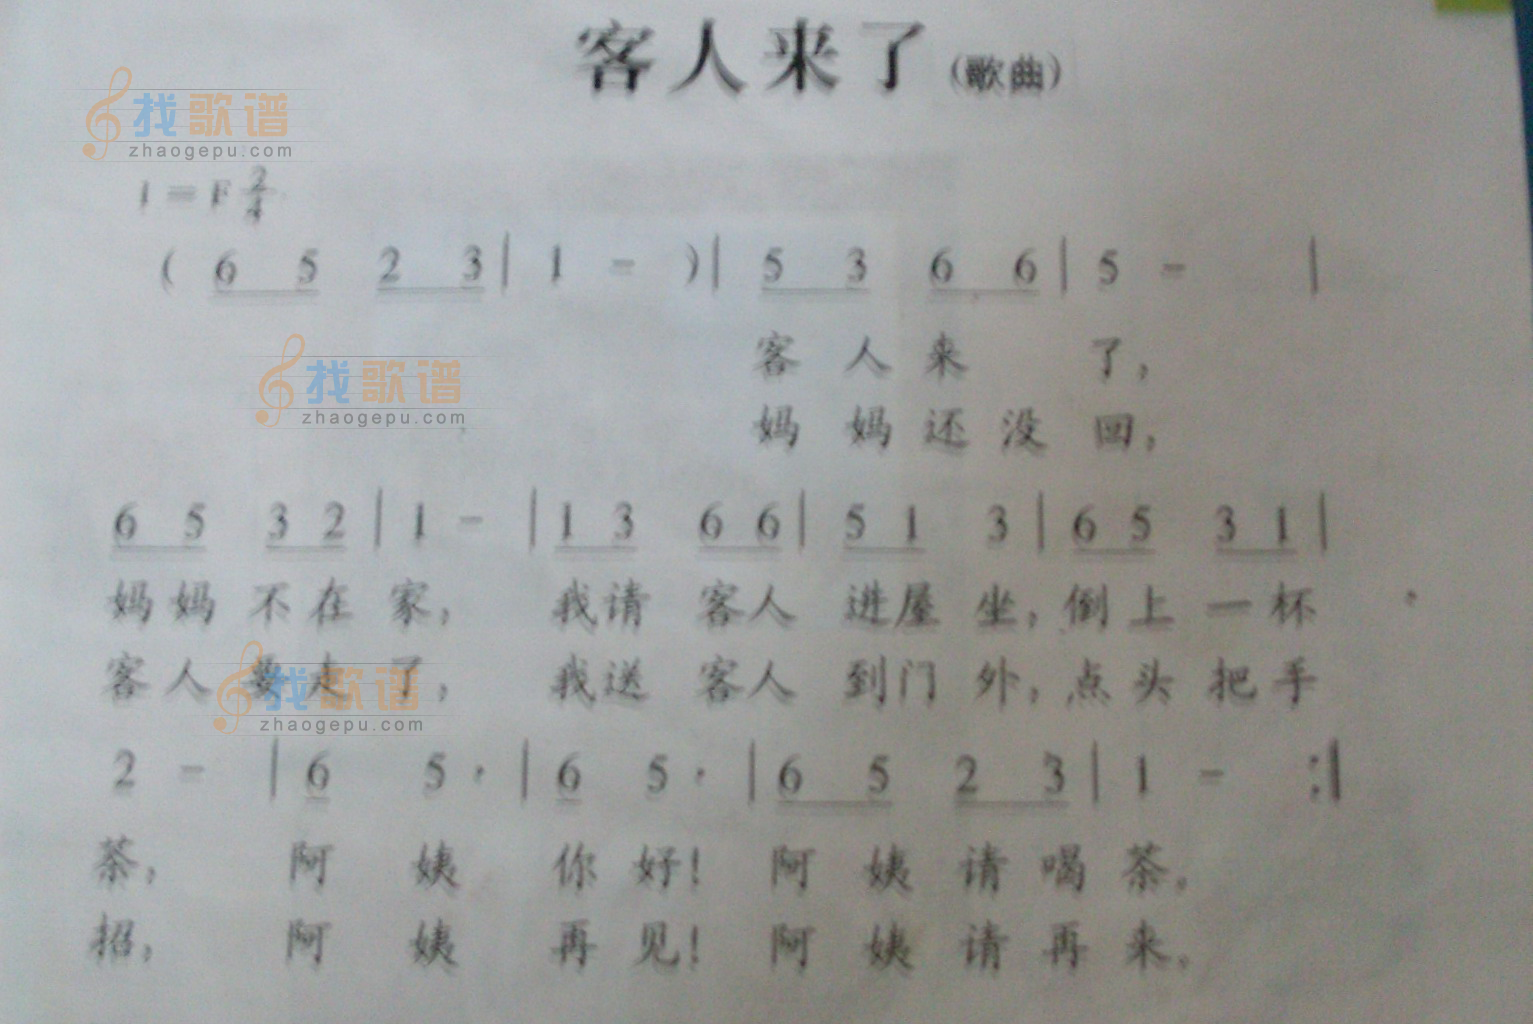 客人来了（歌曲）
找歌谱
zhaogepu.com
1=F 2/4
( 6 5 2 3 | 1 - ) | 5 3 6 6 | 5 - |
客人来 了，
找歌谱
zhaogepu.com
妈妈还没回，
6 5 3 2 | 1 - | 1 3 6 6 | 5 1 3 | 6 5 3 1 |
妈妈不在家， 我请客人进屋坐，倒上一杯
客人要走了， 我送客人到门外，点头把手
找歌谱
zhaogepu.com
2 - | 6 5 · | 6 5 · | 6 5 2 3 | 1 - :|
茶， 阿姨你好！阿姨请喝茶。
招， 阿姨再见！阿姨请再来。